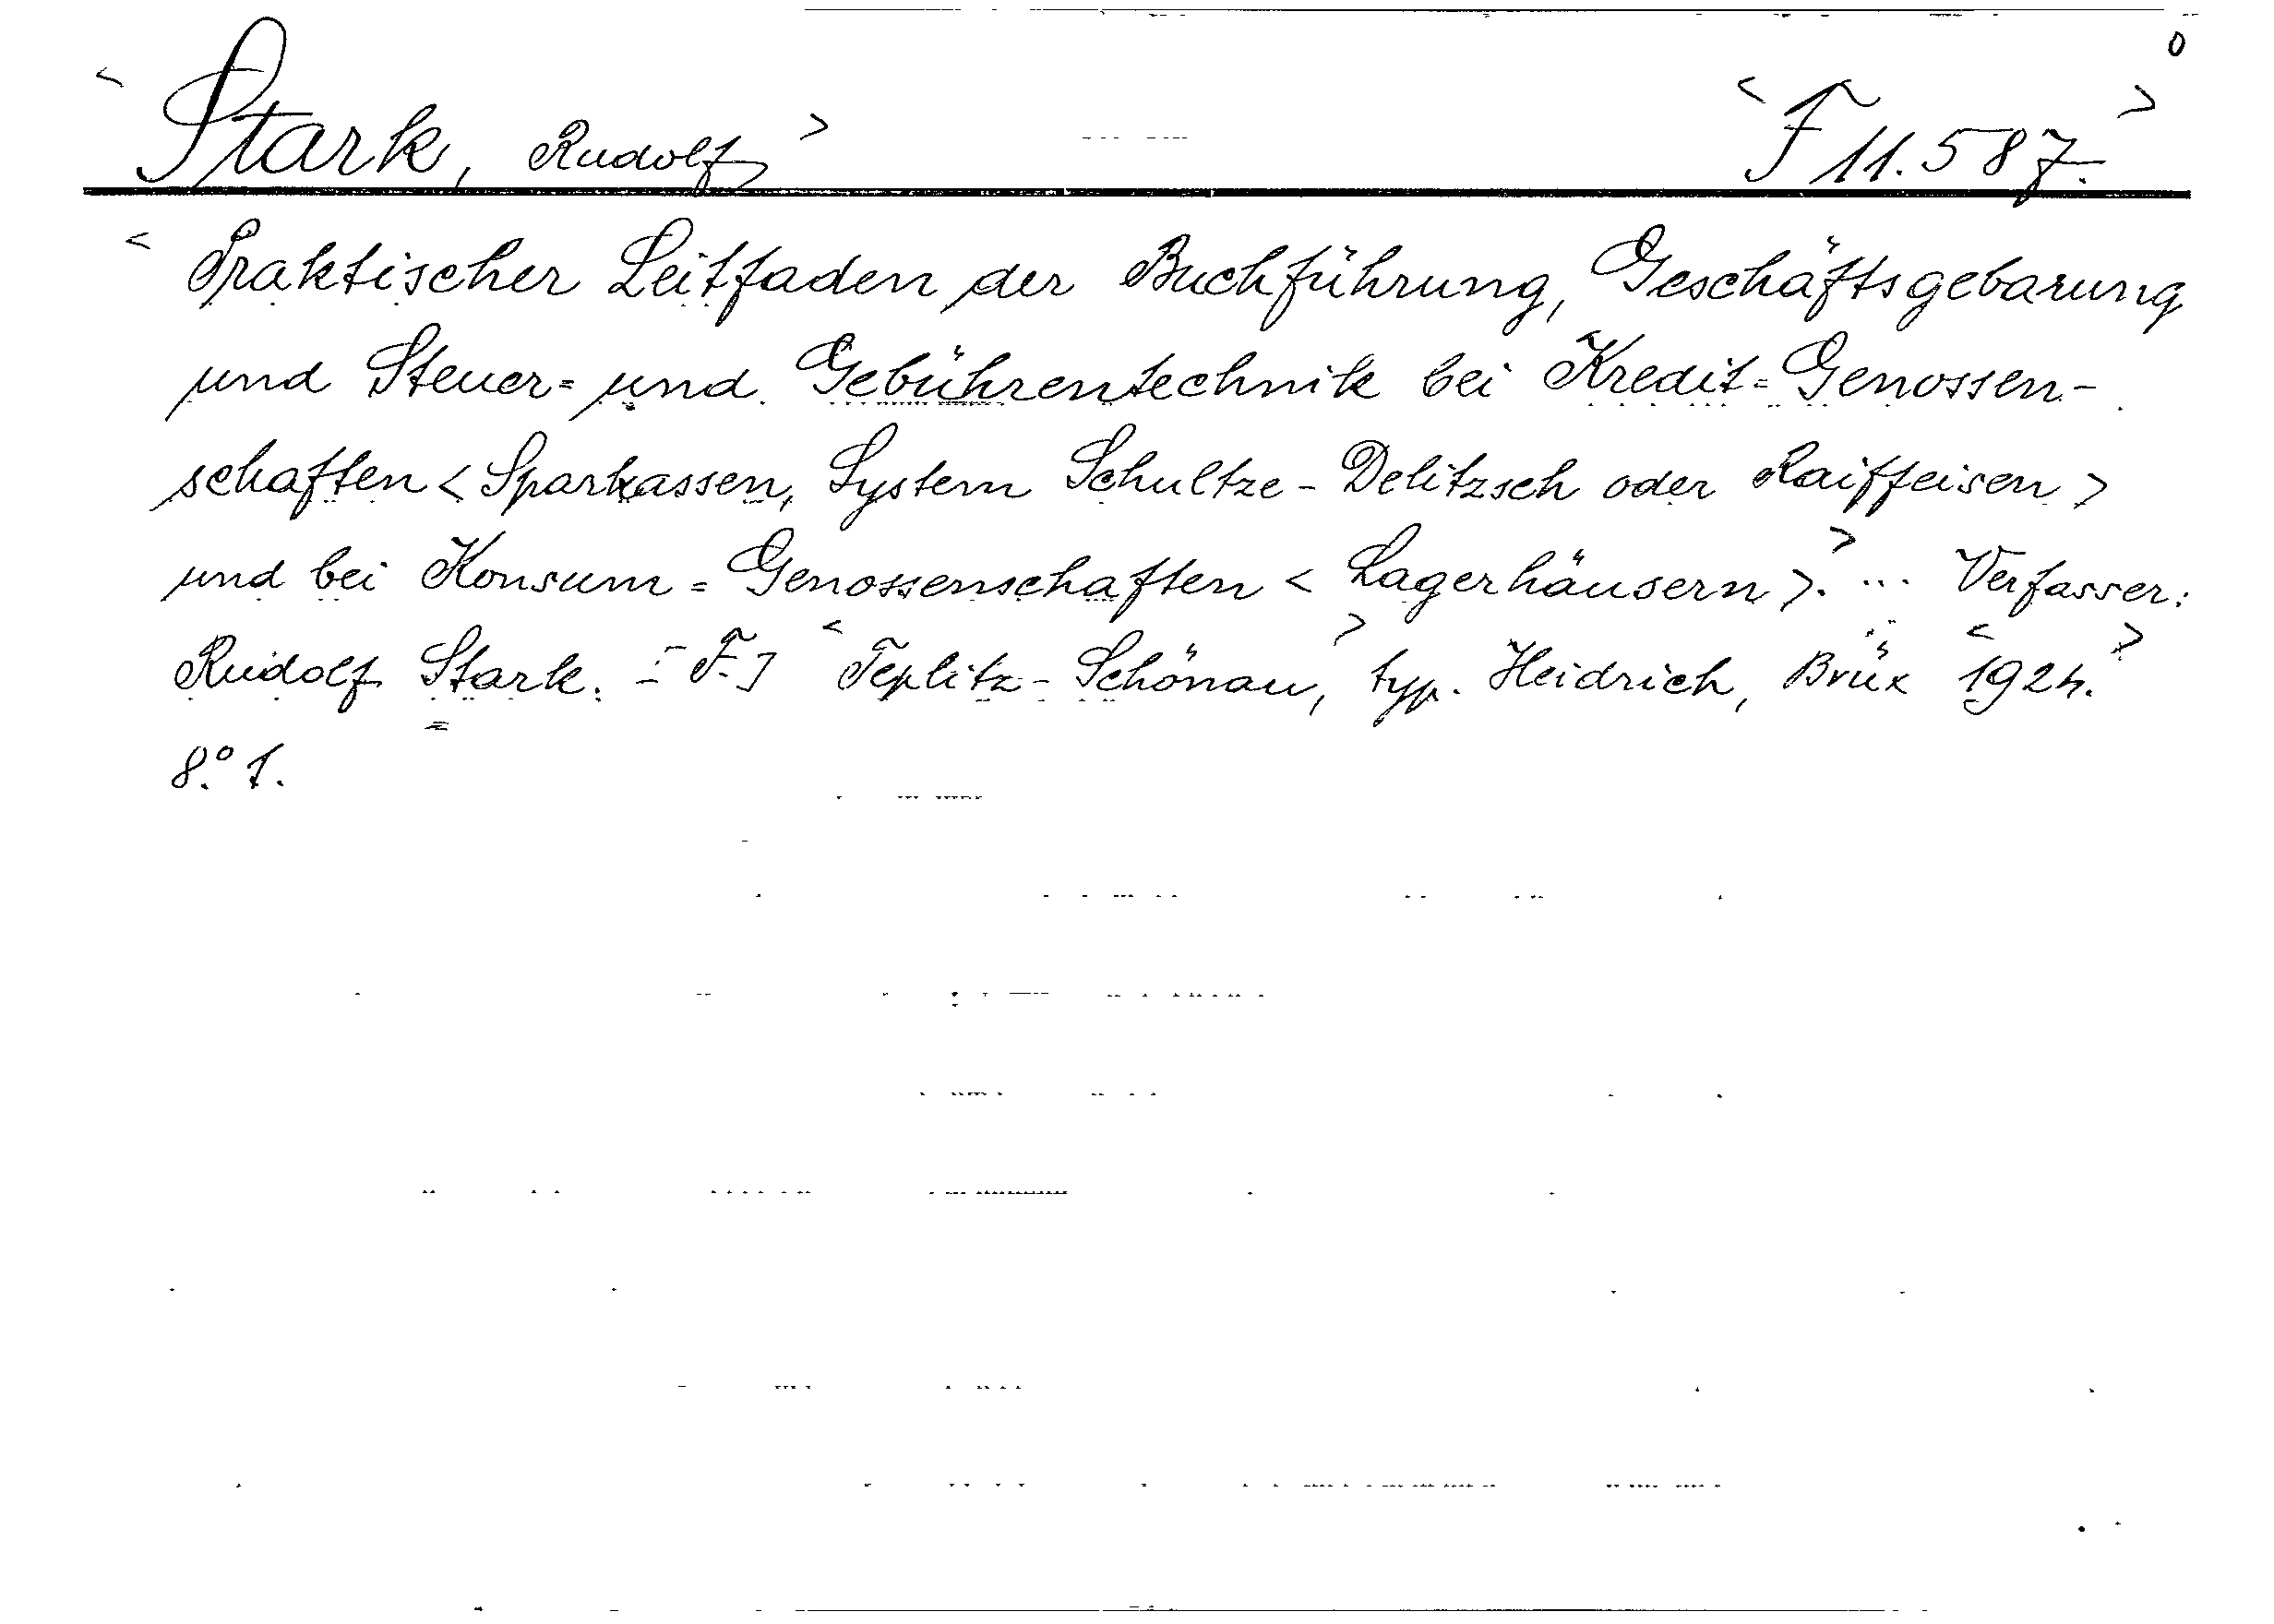 0
< Stark, Rudolf > < F 11.587. >
< Praktischer Leitfaden der Buchführung, Geschäftsgebarung
und Steuer= und Gebührentechnik bei Kredit=Genossen-
schaften < Sparkassen, System Schultze-Delitzsch oder Raiffeisen >
und bei Konsum=Genossenschaften < Lagerhäusern >. > ... Verfasser:
Rudolf Stark. - [F.] < Teplitz-Schönau, > typ. Heidrich, Brüx < 1924. >
8.° 1.